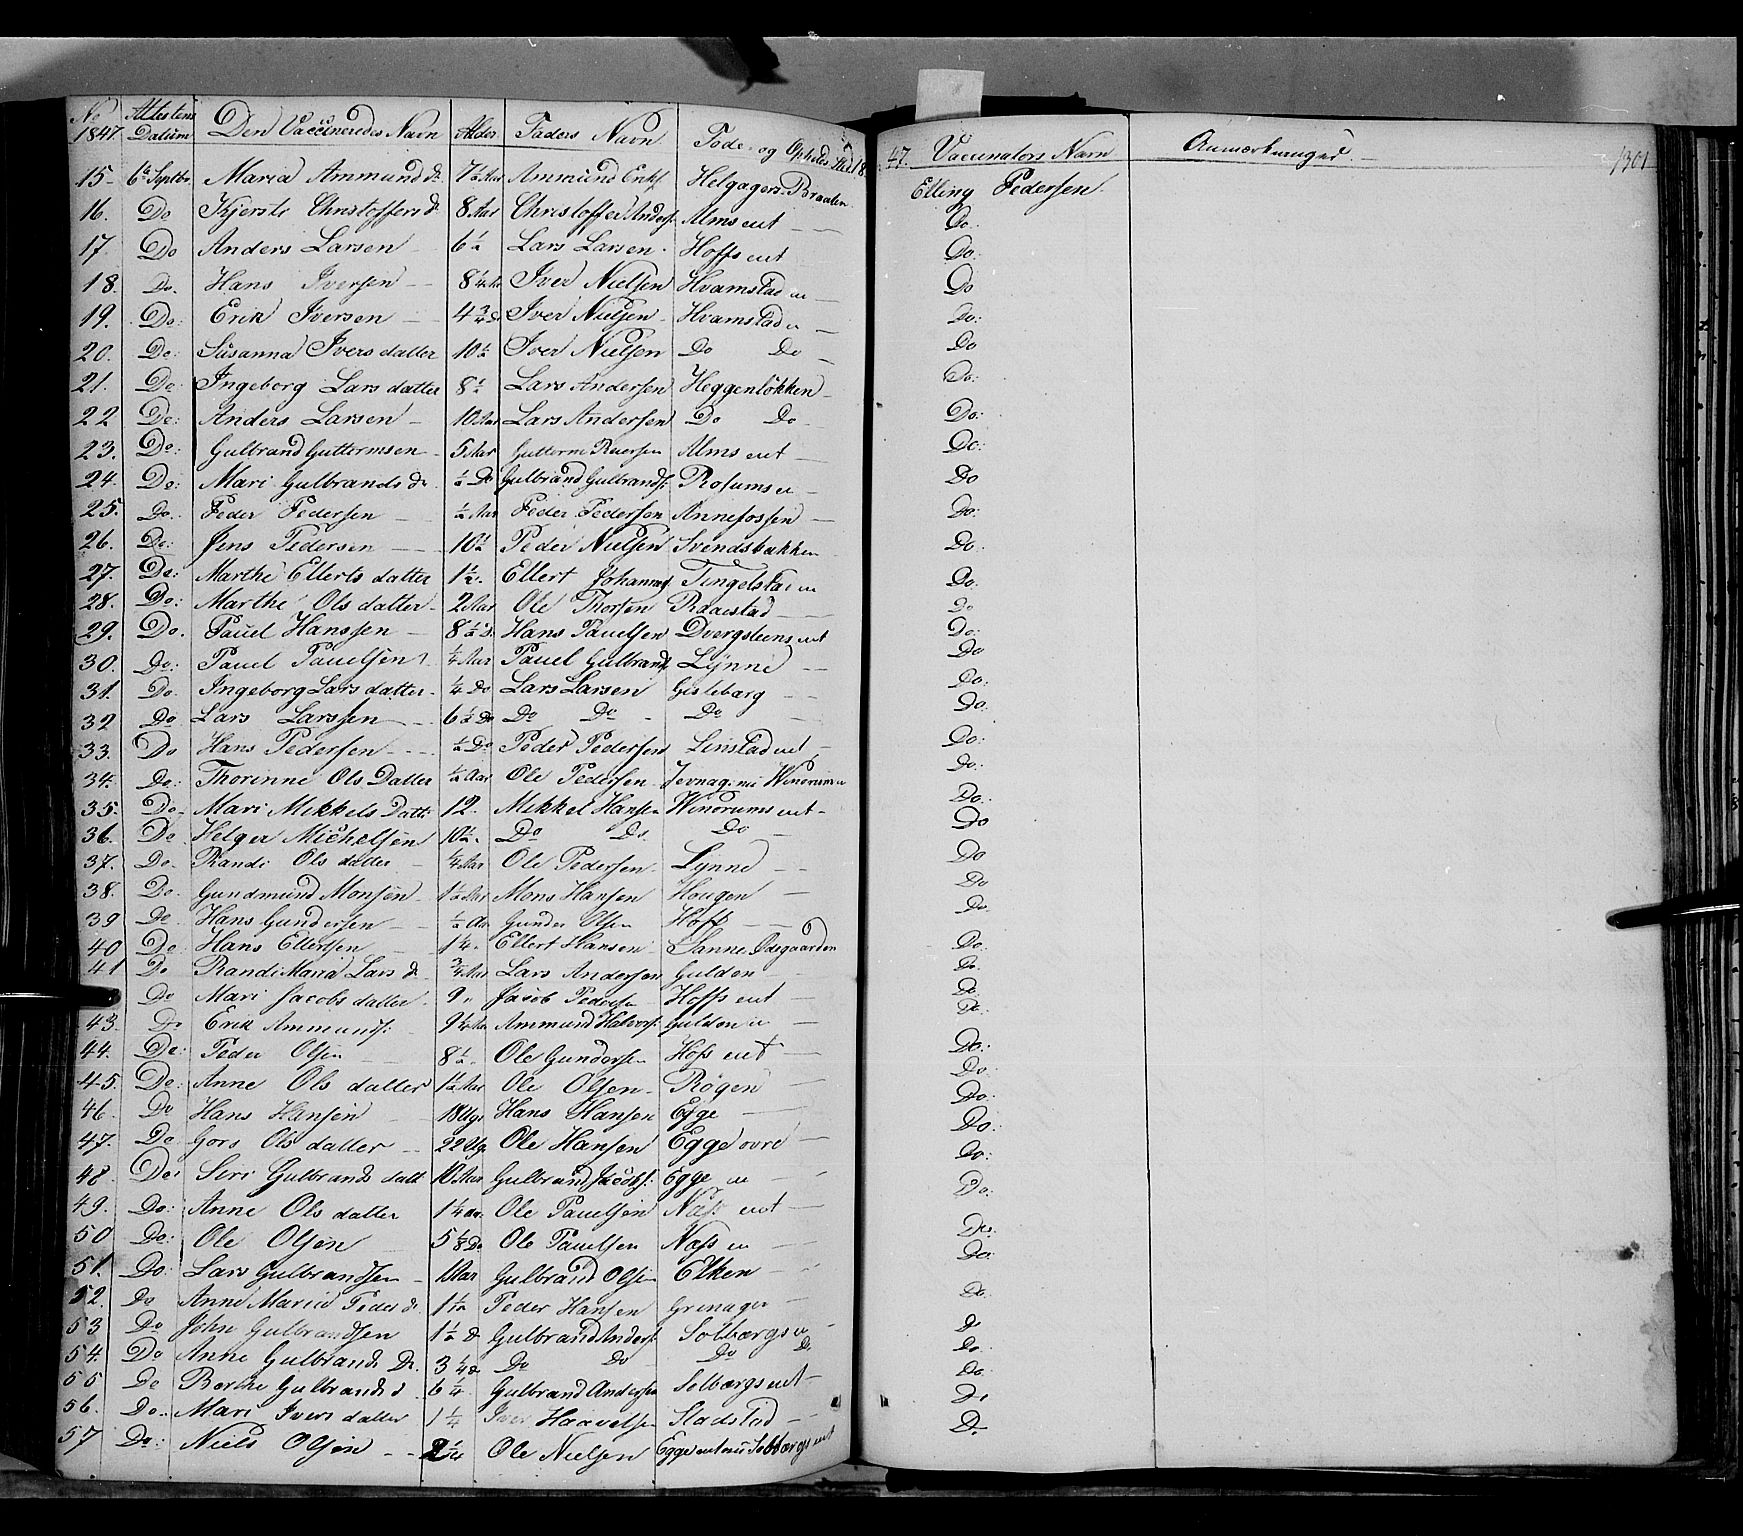 No 1847. Attestens Datum Den Vaccineredes Navn Alder Faders Navn Føde- og Opholds Sted 18
47. Vaccinators Navn Anmærkninger. 301
15 6te Septbr Maria Ammunds d. 7½ Aar Ammund Eriks. Helgagers Braaten Elling Pedersen.
16. Do Kjersti Christoffers d. 8 Aar Christoffer Anders. Alms ent Do.
17. Do Anders Larsen 6½ Lars Larsen. Hoffs ent Do.
18. Do. Hans Iversen 8¼ Iver Nielsen Hvamstad e Do
19. Do: Erik Iversen 4¾ Iver Nielsen Hvamstad e Do:
20. Do: Susanna Ivers datter 10½ Iver Nielsen Do Do Do
21. Do Ingeborg Lars datter 8½ Lars Andersen Heggenløkken Do:
22 Do: Anders Larsen 10 Aar Lars Andersen Do Do Do:
23. Do: Gulbrand Guttormsen 5 Aar Guttorm Alms ent Do:
24. Do: Mari Gulbrands d. ½ Do Gulbrand Gulbrands. Rosums e Do
25. Do. Peder Pedersen ½ Aar Peder Pedersen Annefossen Do:
26. Do: Jens Pedersen 10½ Peder Nielsen Svendsbakken Do.
27. Do: Marthe Ellerts datter 1½. Ellert Johannes Tingelstad e Do.
28. Do: Marthe Ols datter 2 Aar Ole Thorsen Raaestad Do
29. Do. Pauel Hanssen 8½ Hans Pauelsen Dvergsteens ent Do:
30. Do: Pauel Pauelsen ¼ Aar Pauel Gulbrands Lynne Do
31. Do. Ingeborg Lars datter ¼ Do Lars Larsen Gislebarg Do.
32 Do Lars Larssen 6½ Do Do Do Do Do.
33. Do Hans Pedersen ½ Do Peder Pedersen Linstad ent Do:
34. Do: Thorinne Ols Datter ½ Aar Ole Pedersen Jevnager nu Winorum e Do.
35. Do. Mari Mikkels Datter 12. Mikkel Hansen Winorums ent Do.
36. Do Helger Michelsen 10½ Do Do. Do Do
37. Do. Randi Ols datter ¼ Aar Ole Pedersen Lynne Do
38. Do. Gundmund Monsen 1½ Aar Mons Hansen Hougen Do
39 Do Hans Gundersen ½ Aar Gunder Olsen Hoff Do.
40 Do Hans Ellertsen 1¼. Ellert Hansen Sanne Ødegaarden Do.
41 Do Randi Maria Lars d. ¾ Aar Lars Andersen Gulden Do.
Do Mari Jacobs datter 9 Jacob Pedersen Hoffs ent Do
43. Do Erik Ammunds: 9¼ Aar Ammund Halvors: Gulden e Do.
44. Do: Peder Olsen 8½. Ole Gundersen Hofs ent Do:
45. Do: Anne Ols datter 1½ Aar Ole Olsen Røgen Do.
46. Do Hans Hansen 18 Uger Hans Hansen Egge Do:
47. Do Gors Ols datter 22 Ug. Ole Hansen Egge øvre Do:
48. Do: Siri Gulbrands datt 10 Aar Gulbrand Jacobs: Egge e Do:
49. Do: Anne Ols datter 1¼ Ole Pauelsen Næss ent Do:
50 Do: Ole Olsen 5⅛ Do Ole Pauelsen Næss e Do.
51. Do: Lars Gulbrandsen 1 Aar Gulbrand Olsen Elken Do:
52. Do Anne Marie Peders d. 1½ Peder Hansen Grinager Do.
53 Do John Gulbrandsen 1½ d. Gulbrand Anders. Solbergs e Do
54. Do Anne Gulbrands D. 3¼ d. Do Do Do Do Do.
55 Do Berthe Gulbrands d 6¼ Gulbrand Andersen Solbergs ent Do:
56. Do.. Mari Ivers datter 1¼ Iver Haavelsen Sladstad Do
57 Do: Niels Olsen 2¼ Ole Nielsen Egge ent nu Solbergs ent Do